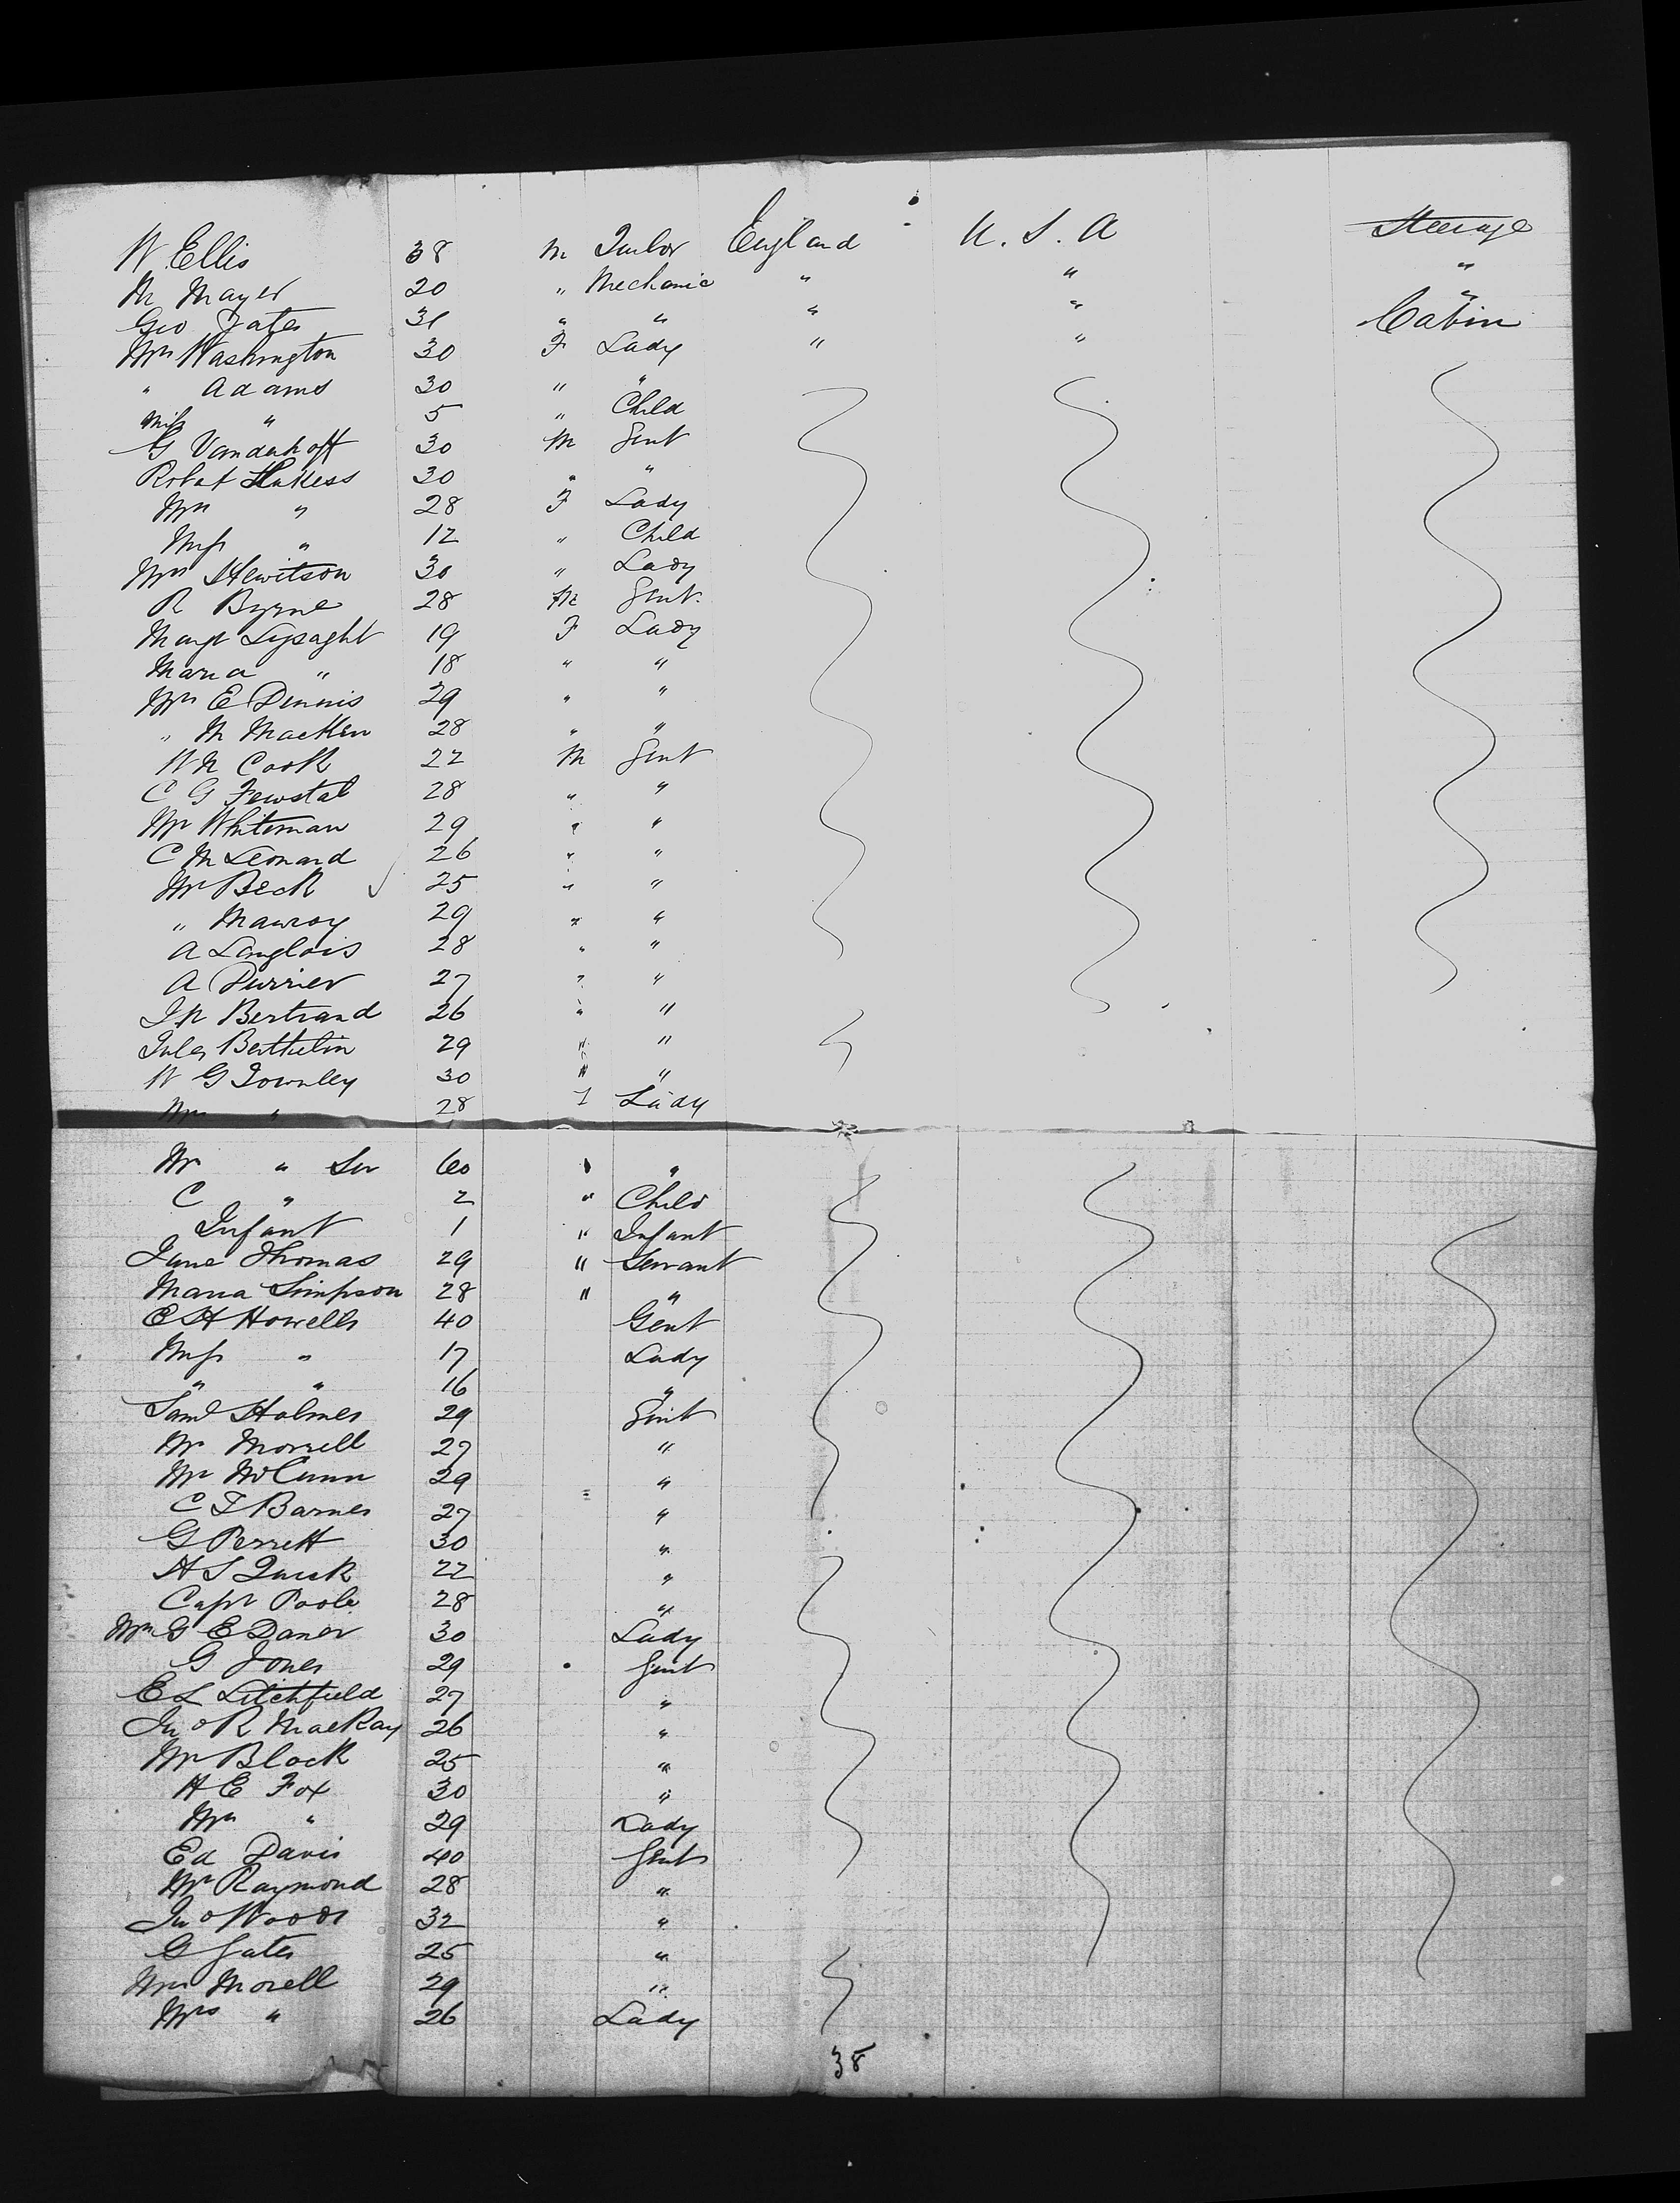 W. Ellis 38 m Tailor England U. S. A Steerage
M Mayer 20 " Mechanic " " "
Geo Yates 31 " " " " "
Mrs Washington 30 F Lady " " Cabin
" Adams 30 " "
Miss " 5 " Child
G Vandenhoff 30 M Gent
Robat 30 " "
Mrs " 28 F Lady
Miss " 12 " Child
Mrs Hewitson 30 " Lady
R Byrne 28 M Gent.
Margt Lysaght 19 F Lady
Maria " 18 " "
Mrs E Dennis 29 " "
" M Macken 28 " "
W N Cook 22 M Gent
C G Fewstal 28 " "
Mr Whiteman 29 " "
C M Leonard 26 " "
Mr Beck 25 " "
" Mawroy 29 " "
A Langlois 28 " "
A Purrier 27 " "
Bertrand 26 " "
Jules Berthelin 29 " "
W G Townley 30 " "
Mrs " 28 F Lady
Mr " Sen 60 "
C " 2 " Child
Infant 1 " Infant
Jane Thomas 29 " Servant
Maria Simpson 28 " "
E H Howells 40 Gent
Miss " 17 Lady
" " 16 "
Saml Holmes 29 Gent
Mr Morrell 27 "
Mr McCunn 29 "
C T Barnes 27 "
G Perrett 30 "
H S Quick 22 "
Capt Poole 28 "
Mrs G E Daner 30 Lady
G Jones 29 Gent
E L Litchfield 27 "
Jno R MacKay 26 "
Mr Block 25 "
H E Fox 30 "
Mrs " 29 Lady
Ed Davis 40 Gent
Mr Raymond 28 "
Jno Woods 32 "
G Yates 25 "
Morell 29 "
Mrs " 26 Lady
38